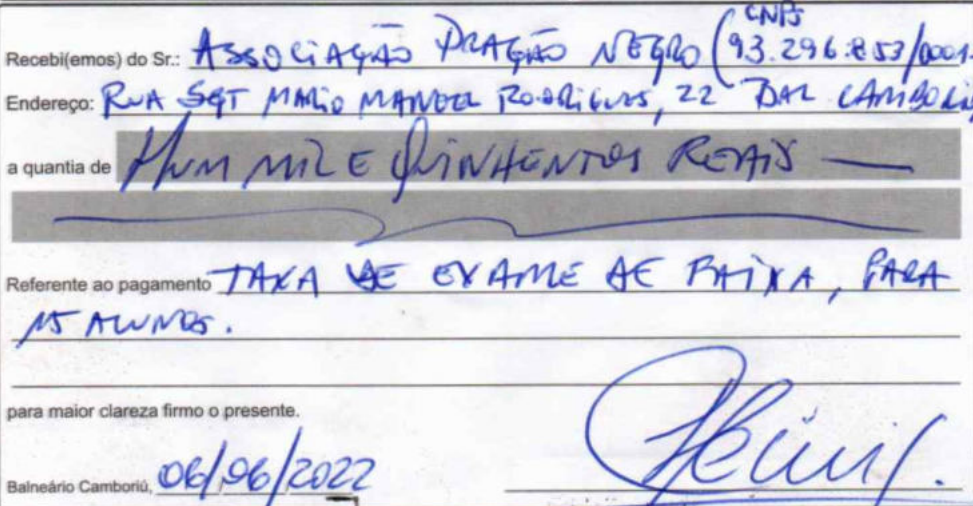 Recebi(emos) do Sr.: ASSOCIAÇÃO DRAGÃO NEGRO (CNPJ 93.296.853/0001-
Endereço: RUA SGT MARIO MANOEL RODRIGUES, 22 BAL CAMBORIÚ
a quantia de HUM MIL E QUINHENTOS REAIS
Referente ao pagamento TAXA DE EXAME DE FAIXA, PARA
15 ALUNOS.
para maior clareza firmo o presente.
Balneário Camboriú, 06/06/2022